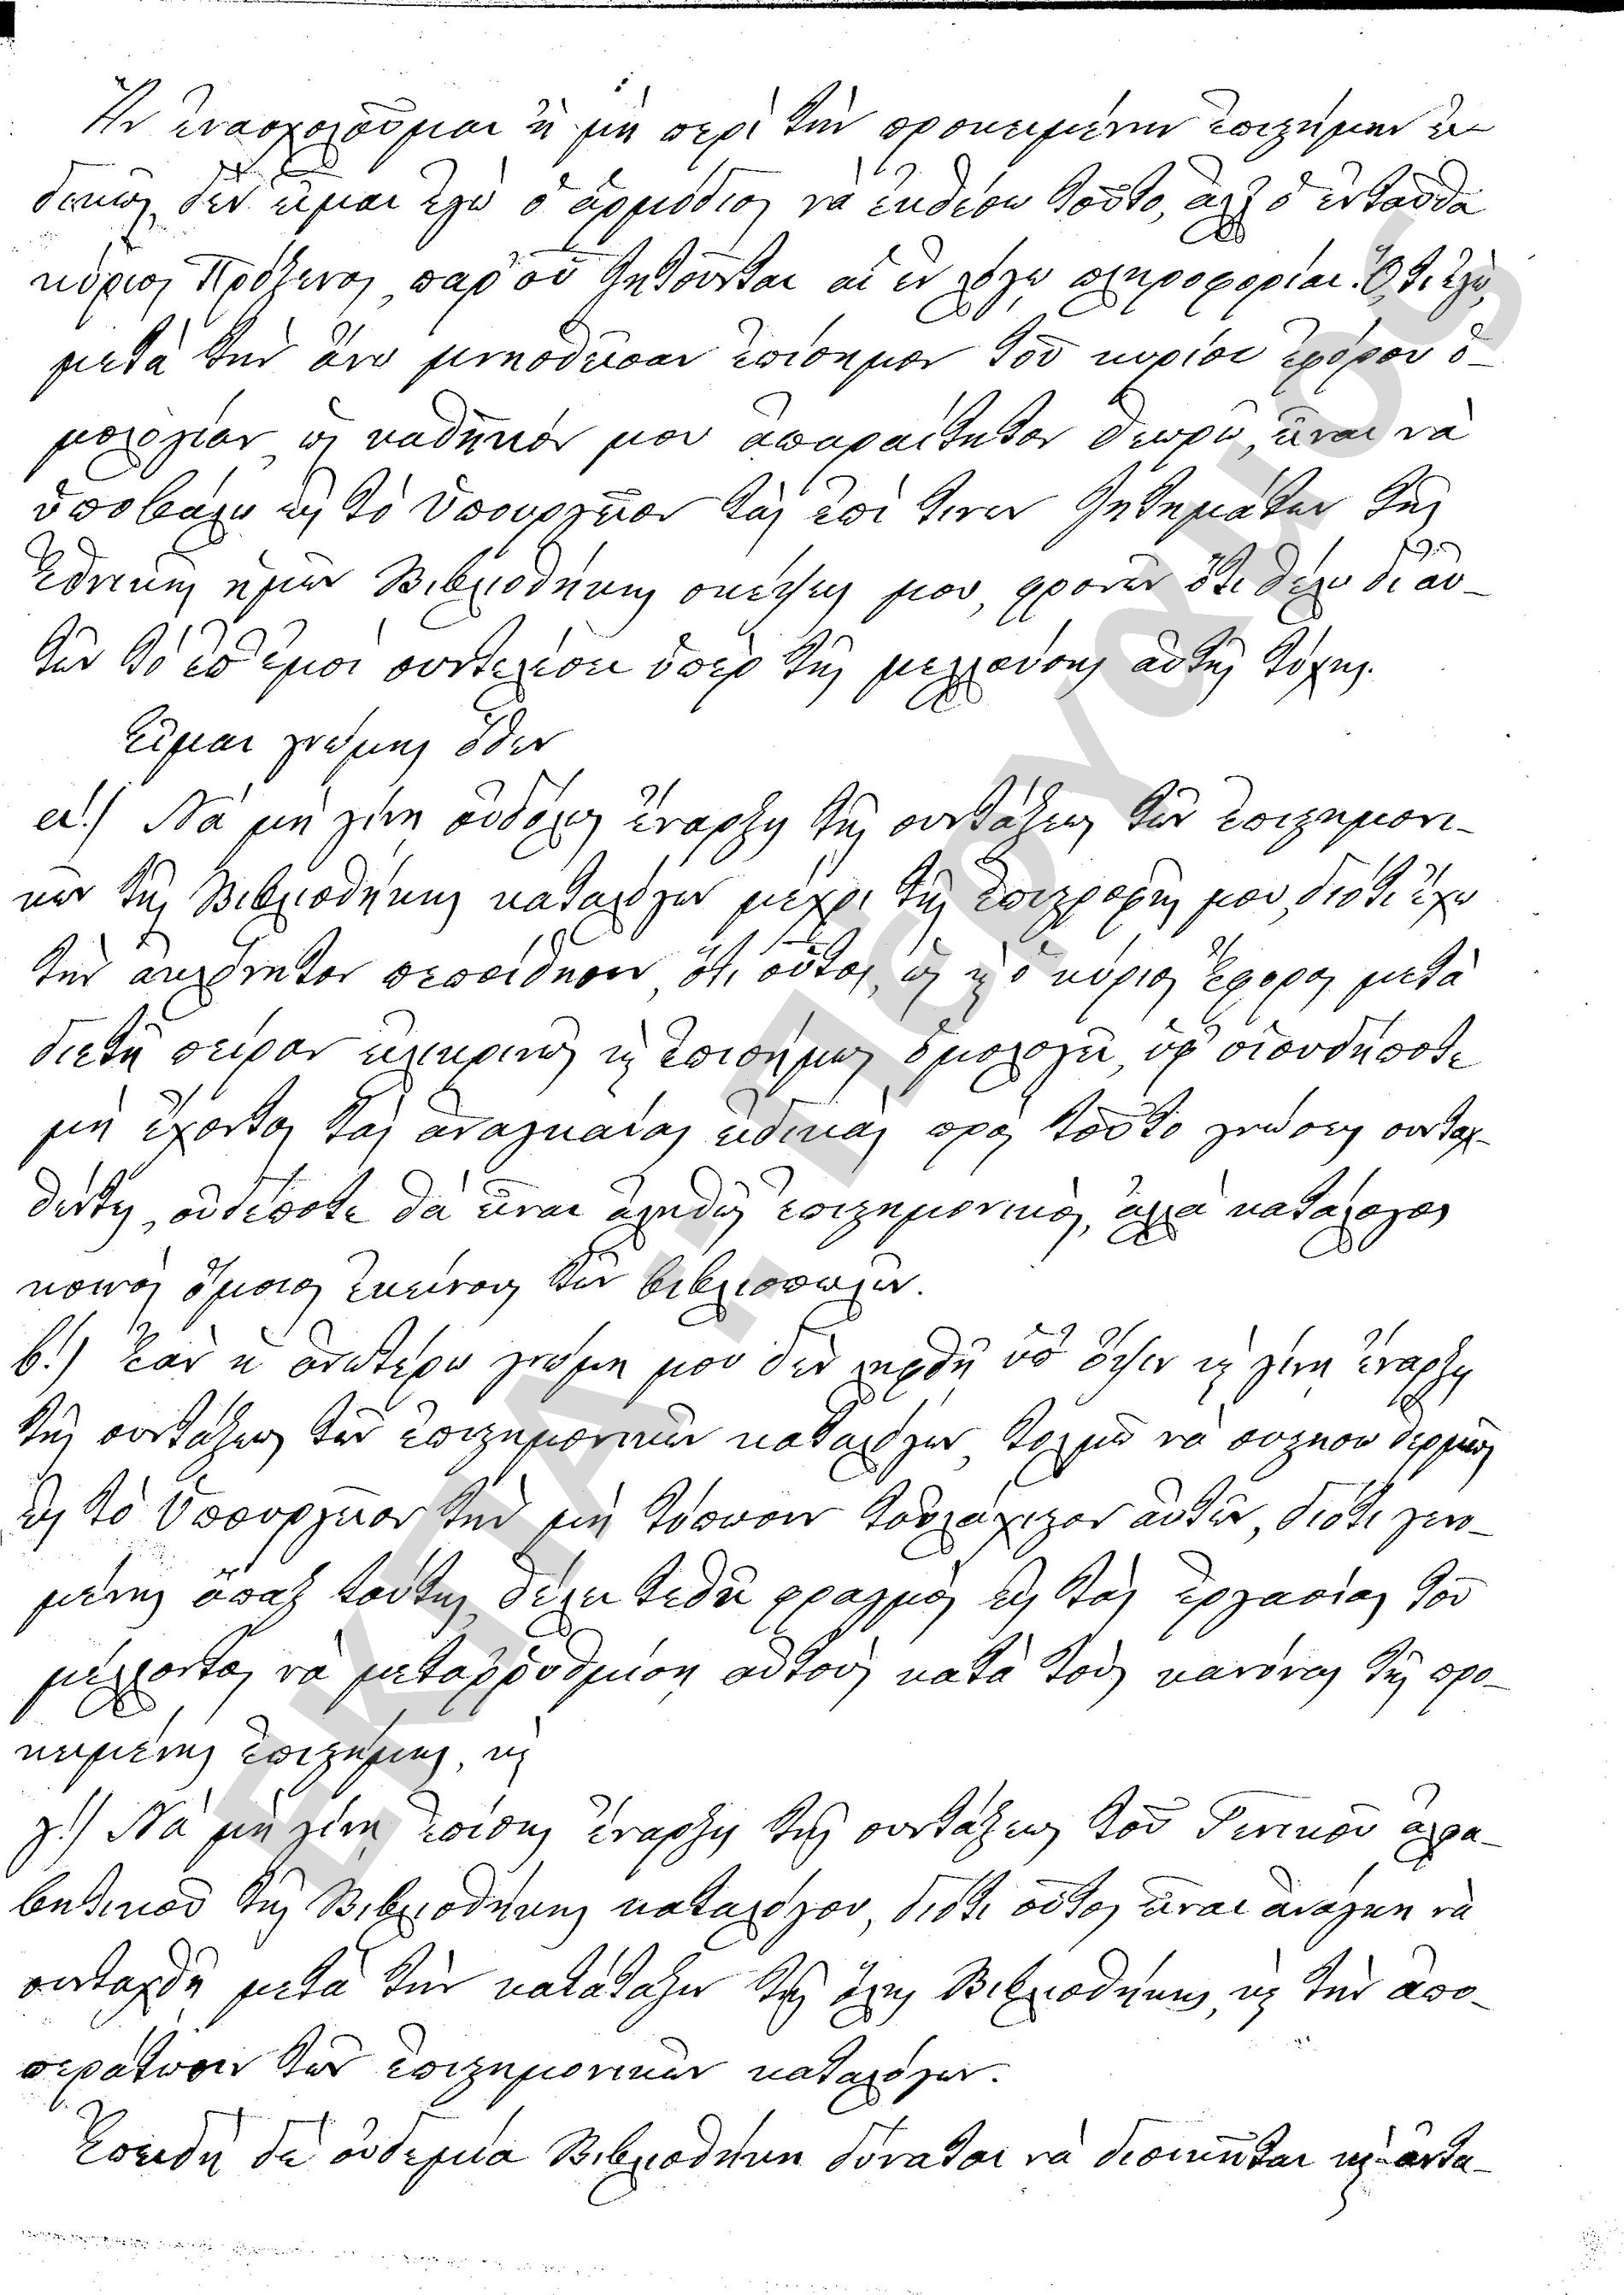 Ἂν ἐνασχολοῦμαι ἢ μὴ περὶ τὴν προκειμένην ἐπιστήμην εἰ-
δικῶς, δὲν εἶμαι ἐγὼ ὁ ἁρμόδιος νὰ ἐκθέσω τοῦτο, ἀλλ' ὁ ἐνταῦθα
κύριος Πρόξενος, παρ' οὗ ζητοῦνται αἱ ἐν λόγῳ πληροφορίαι. Ὅ,τι ἐγὼ,
μετὰ τὴν ἄνω μνησθεῖσαν ἐπίσημον τοῦ κυρίου Ἐφόρου ὁ-
μολογίαν, ὡς καθῆκόν μου ἀπαραίτητον θεωρῶ, εἶναι νὰ
ὑποβάλω εἰς τὸ Ὑπουργεῖον τὰς ἐπί τινων ζητημάτων τῆς
Ἐθνικῆς ἡμῶν Βιβλιοθήκης σκέψεις μου, φρονῶν ὅτι θέλω δι' αὐ-
τῶν τὸ ἐπ' ἐμοὶ συντελέσει ὑπὲρ τῆς μελλούσης αὐτῆς τύχης.
Εἶμαι γνώμης ὅθεν
α'.) Νὰ μὴ γίνῃ οὐδόλως ἔναρξις τῆς συντάξεως τῶν ἐπιστημονι-
κῶν τῆς Βιβλιοθήκης καταλόγων μέχρι τῆς ἐπιστροφῆς μου, διότι ἔχω
τὴν ἀκλόνητον πεποίθησιν, ὅτι οὗτος, ὡς καὶ ὁ κύριος Ἔφορος μετὰ
διετῆ πεῖραν εἰλικρινῶς καὶ ἐπισήμως ὁμολογεῖ, ὑφ' οἱουδήποτε
μὴ ἔχοντος τὰς ἀναγκαίας εἰδικὰς πρὸς τοῦτο γνώσεις συνταχ-
θέντες, οὐδέποτε θὰ εἶναι ἀληθῶς ἐπιστημονικὸς, ἀλλὰ κατάλογος
κοινὸς ὅμοιος ἐκείνοις τῶν βιβλιοπωλῶν.
β'.) Ἐὰν ἡ ἀνωτέρω γνώμη μου δὲν ληφθῇ ὑπ' ὄψιν καὶ γίνῃ ἔναρξις
τῆς συντάξεως τῶν ἐπιστημονικῶν καταλόγων, τολμῶ νὰ συστήσω θερμῶς
εἰς τὸ Ὑπουργεῖον τὴν μὴ τύπωσιν τοὐλάχιστον αὐτῶν, διότι γενο-
μένης ἅπαξ ταύτης, θέλει τεθῆ φραγμὸς εἰς τὰς ἐργασίας τοῦ
μέλλοντος νὰ μεταῤῥυθμίσῃ αὐτοὺς κατὰ τοὺς κανόνας τῆς προ-
κειμένης ἐπιστήμης, καὶ
γ'.) Νὰ μὴ γίνῃ ἐπίσης ἔναρξις τῆς συντάξεως τοῦ Γενικοῦ ἀλφα-
βητικοῦ τῆς Βιβλιοθήκης καταλόγου, διότι οὗτος εἶναι ἀνάγκη νὰ
συνταχθῇ μετὰ τὴν κατάταξιν τῆς ὅλης Βιβλιοθήκης, καὶ τὴν ἀπο-
περάτωσιν τῶν ἐπιστημονικῶν καταλόγων.
Ἐπειδὴ δὲ οὐδεμία Βιβλιοθήκη δύναται νὰ διοικῆται καὶ ἀντα-
ΕΚΠΑ - ΠΘΡΥδΙΟΣ